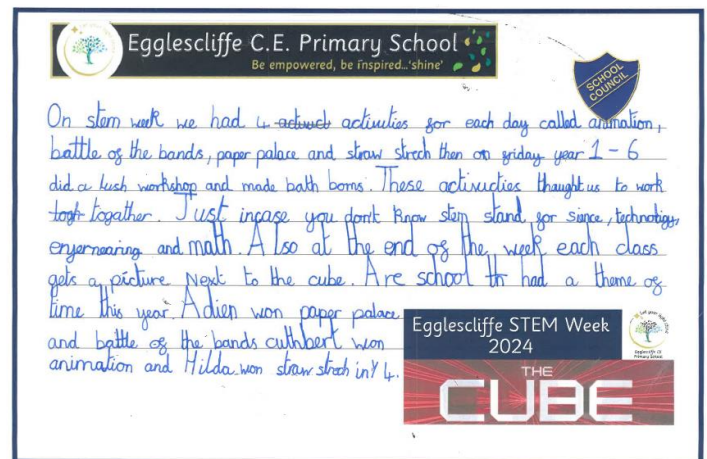 Egglescliffe C.E. Primary School
Be empowered, be inspired...'shine'
SCHOOL
COUNCIL
On stem week we had 4 activities for each day called animation,
battle of the bands, paper palace and straw strech then on friday year 1-6
did a lush workshop and made bath boms. These activicties thaught us to work
togh togather. Just incase you don't know stem stand for sience, technology,
enyernearing and math. Also at the end of the week each class
gets a picture Next to the cube. Are school th had a theme of
time this year. Adien won paper palace
and battle of the bands cuthbert won
animation and Hilda won straw strech in Y4.
Egglescliffe STEM Week
2024
Egglescliffe CE
Primary School
THE
CUBE